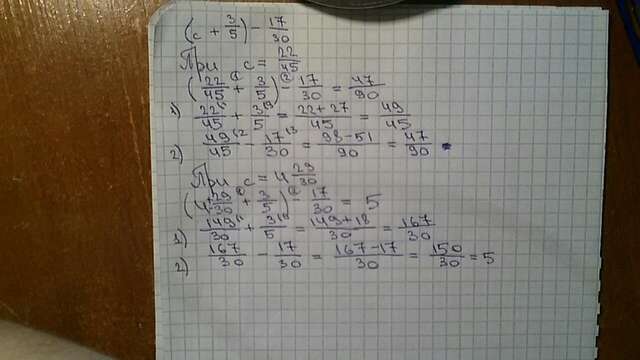 (c + 3/5) - 17/30
При c = 22/45
(22/45 + 3/5) - 17/30 = 47/90
1) 22/45 + 3/5 = 22+27/45 = 49/45
2) 49/45 - 17/30 = 98-51/90 = 47/90.
При c = 4 29/30
(4 29/30 + 3/5) - 17/30 = 5
1) 149/30 + 3/5 = 149+18/30 = 167/30
2) 167/30 - 17/30 = 167-17/30 = 150/30 = 5